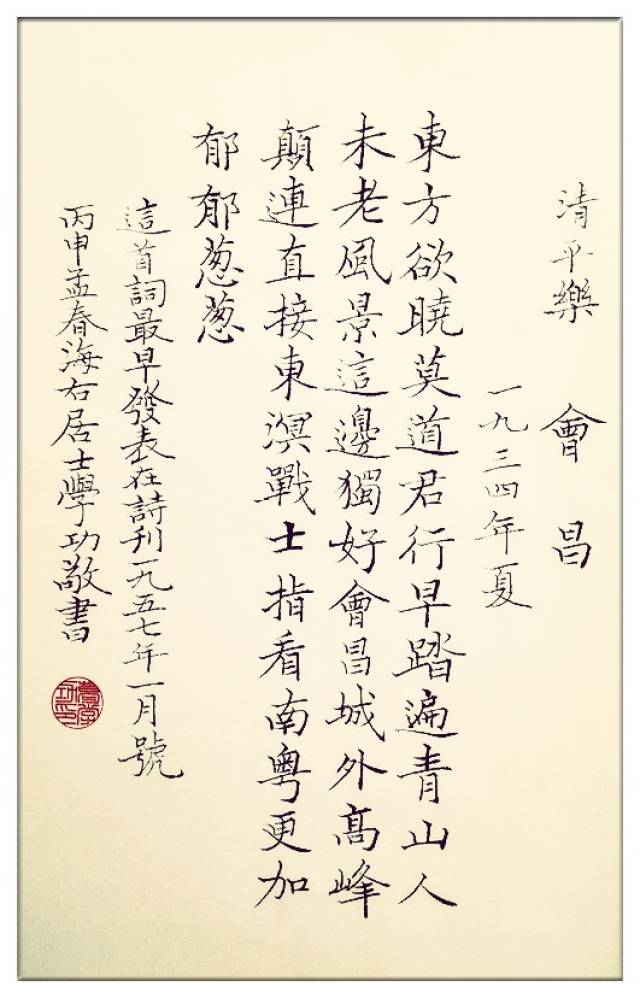 清平樂 會昌
一九三四年夏
東方欲曉莫道君行早踏遍青山人
未老風景這邊獨好會昌城外高峰
顛連直接東溟戰士指看南粵更加
郁郁葱葱
這首詞最早發表在詩刊一九五七年一月號
丙申孟春海右居士學功敬書